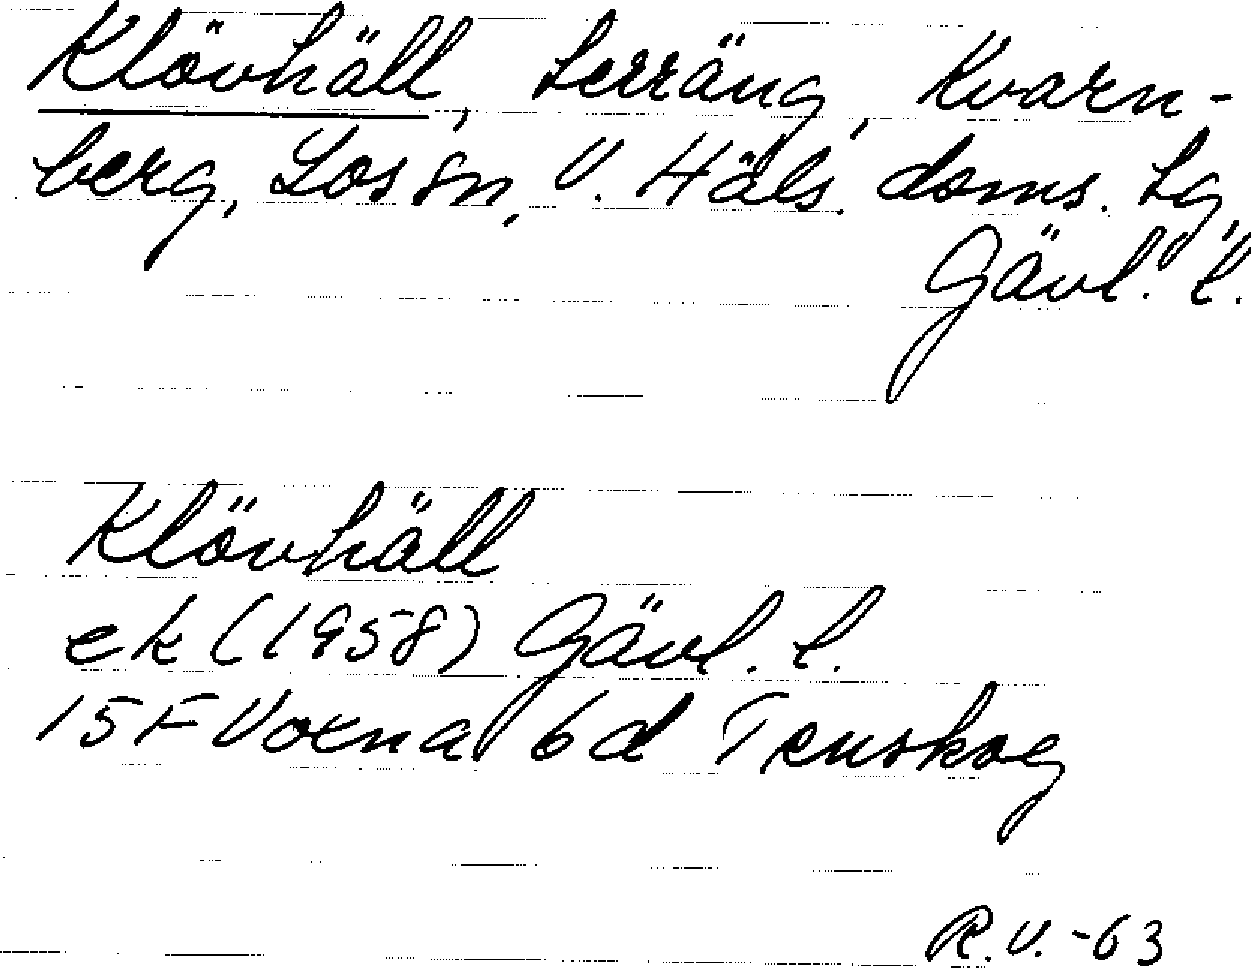 Klövhäll, terräng, Kvarn-
berg, Los sn, V. Häls. doms. tg,
Gävl. l.
Klövhäll
ek (1958) Gävl. l.
15 F Voxna 6 d Tenskog
R.V. -63